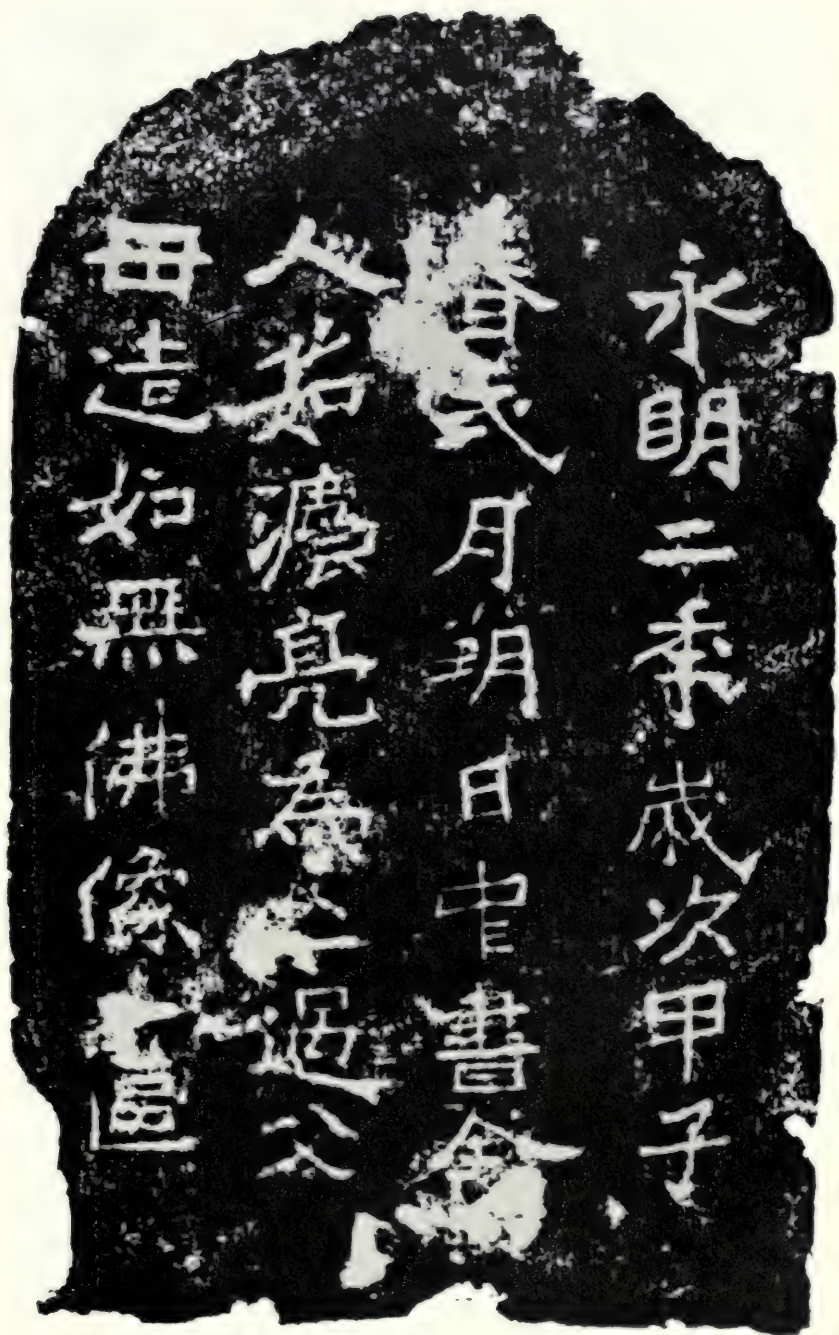 永明二秊歲次甲子
春弍月朔日中書舍
人茹灋亮為亡過父
母造如無佛像一區